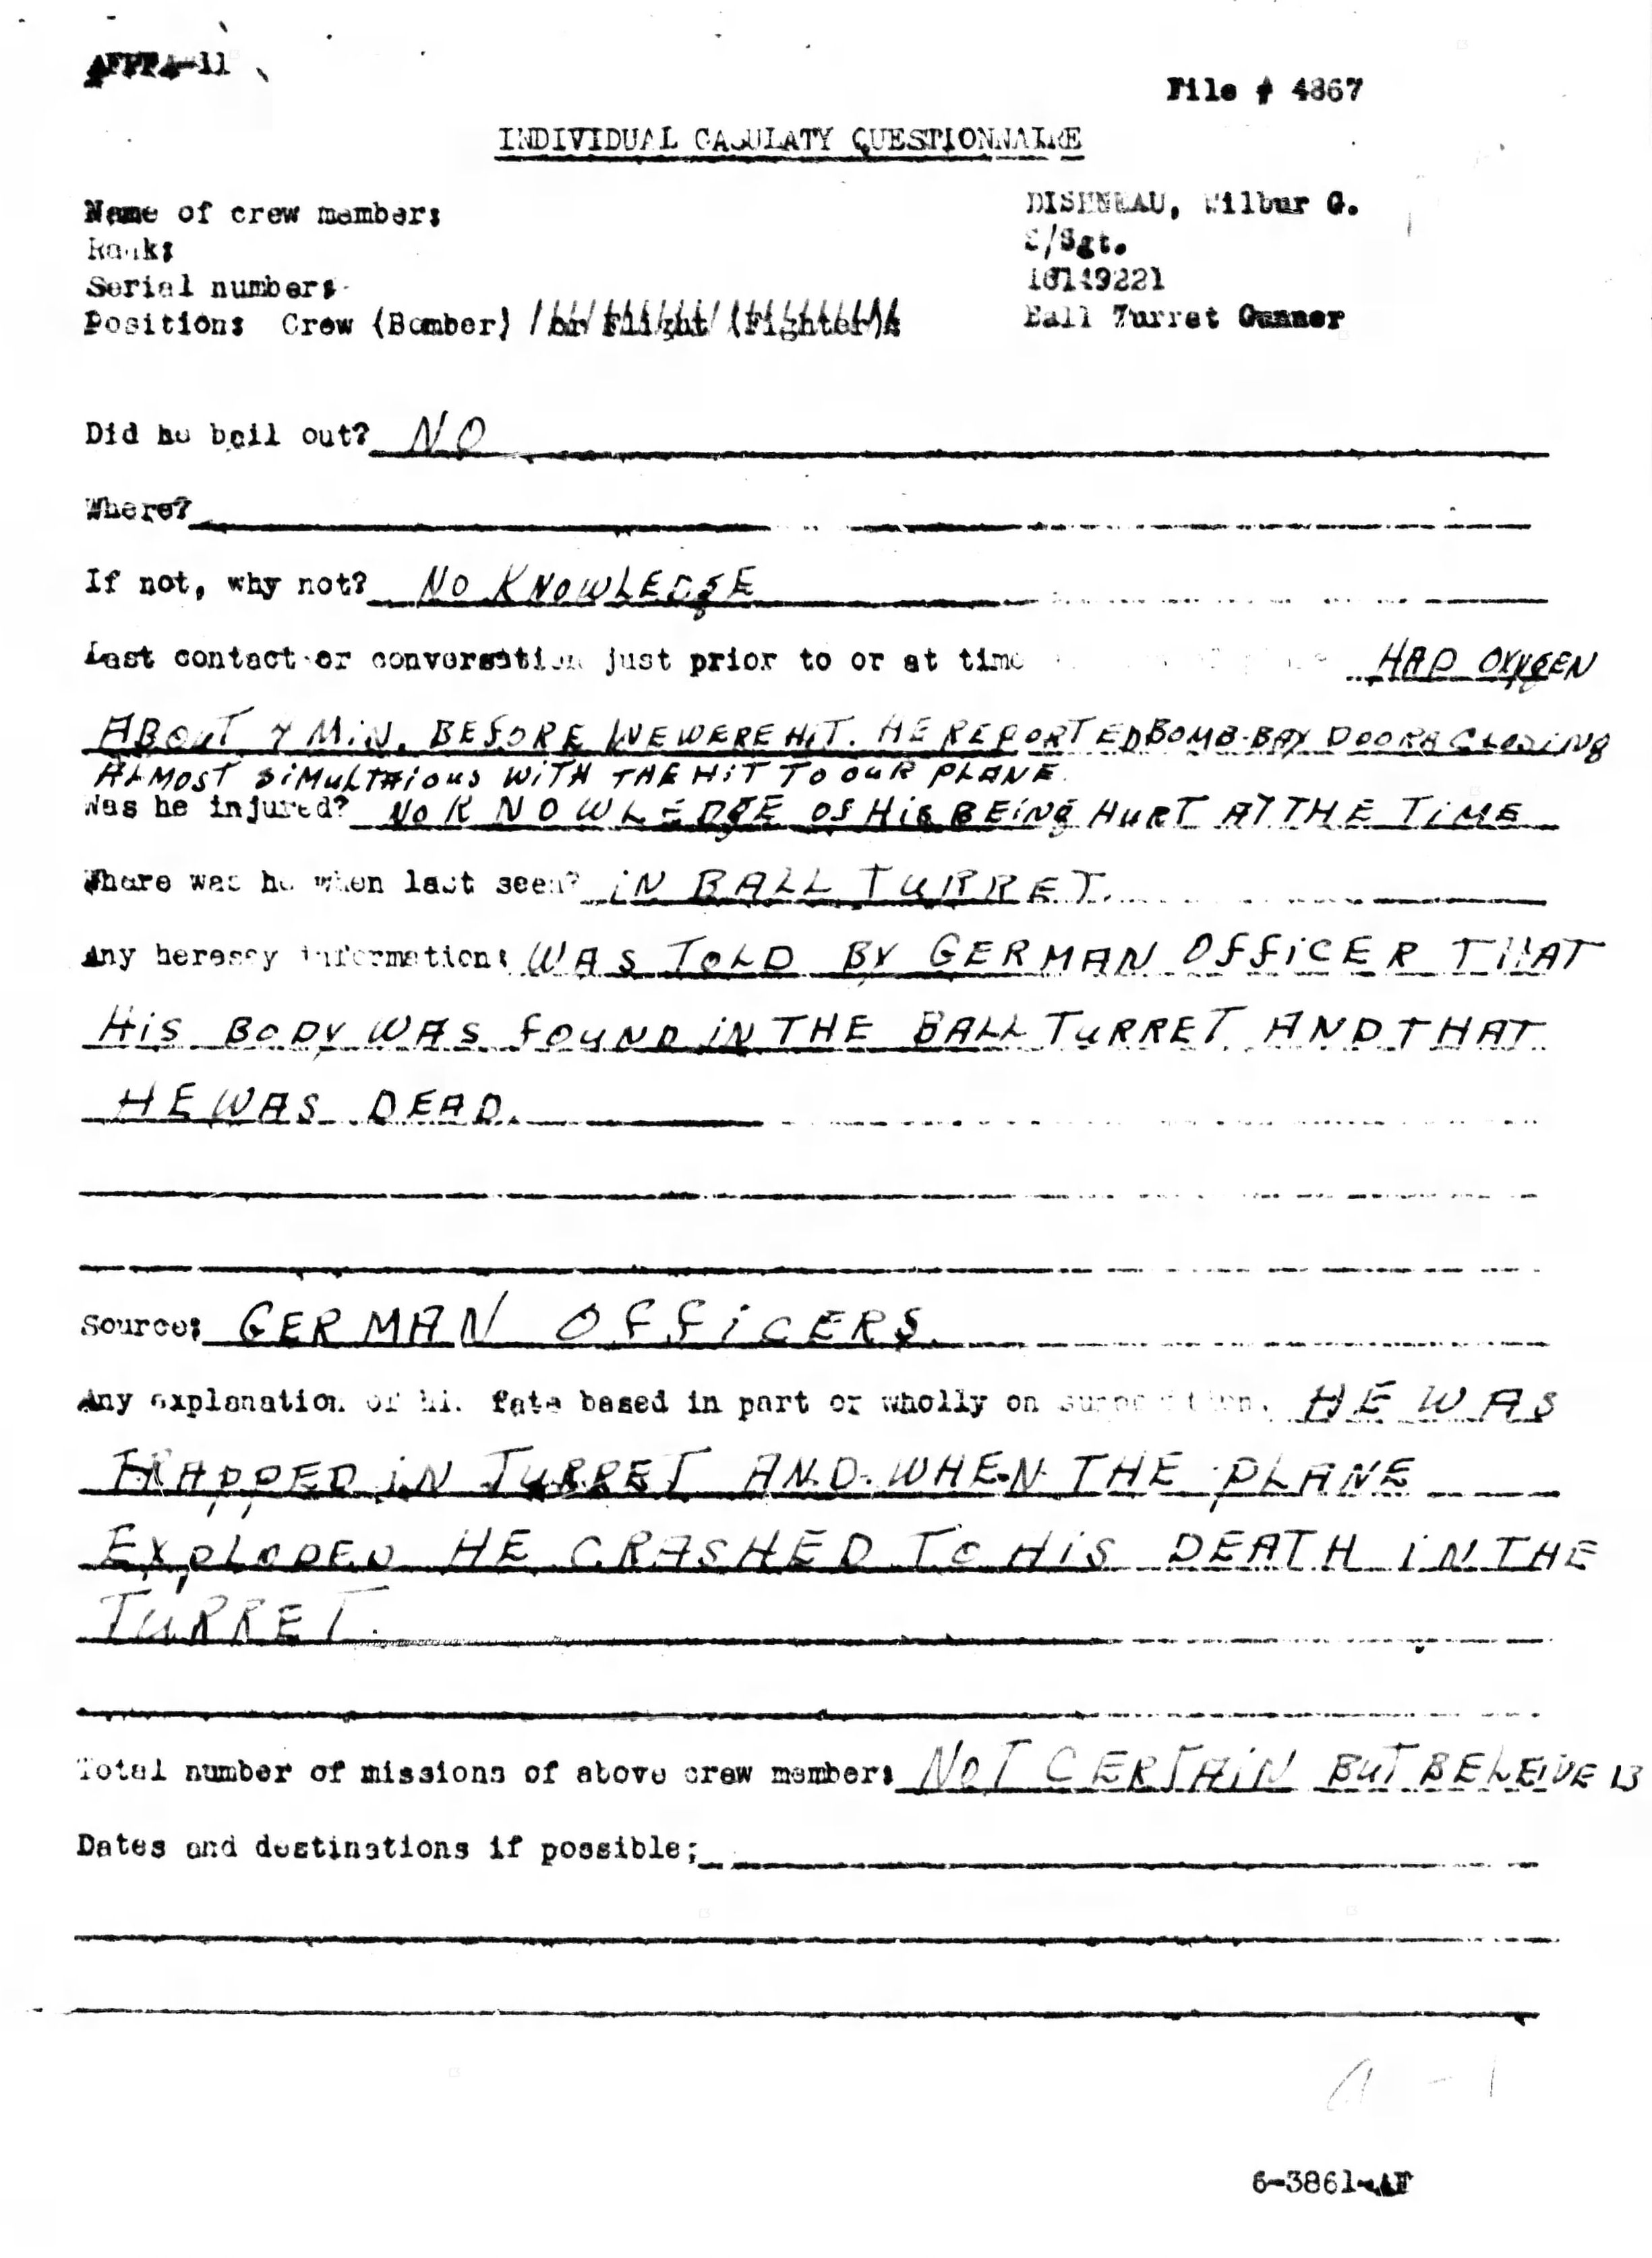 AFPPA-11
File # 4867
INDIVIDUAL CASULATY QUESTIONNAIRE
Name of crew member: DISHNEAU, Wilbur G.
Rank: S/Sgt.
Serial number: 16149221
Position: Crew (Bomber) or Flight (Fighter): Ball Turret Gunner
Did he bail out? NO
Where?
If not, why not? NO KNOWLEDGE
Last contact or conversation just prior to or at time HAD OXYGEN
ABOUT 4 MIN. BEFORE WE WERE HIT. HE REPORTED BOMB-BAY DOORA CLOSING
ALMOST SIMULTAIOUS WITH THE HIT TO OUR PLANE.
Was he injured? NO KNOWLEDGE OF HIS BEING HURT AT THE TIME
Where was he when last seen? IN BALL TURRET.
Any heresay information: WAS TOLD BY GERMAN OFFICER THAT
HIS BODY WAS FOUND IN THE BALL TURRET AND THAT
HE WAS DEAD.
Source: GERMAN OFFICERS.
Any explanation of his fate based in part or wholly on supposition. HE WAS
TRAPPED IN TURRET AND WHEN THE PLANE
EXPLODED HE CRASHED TO HIS DEATH IN THE
TURRET.
Total number of missions of above crew member: NOT CERTAIN BUT BELEIVE 13
Dates and destinations if possible;
6-3861-AF